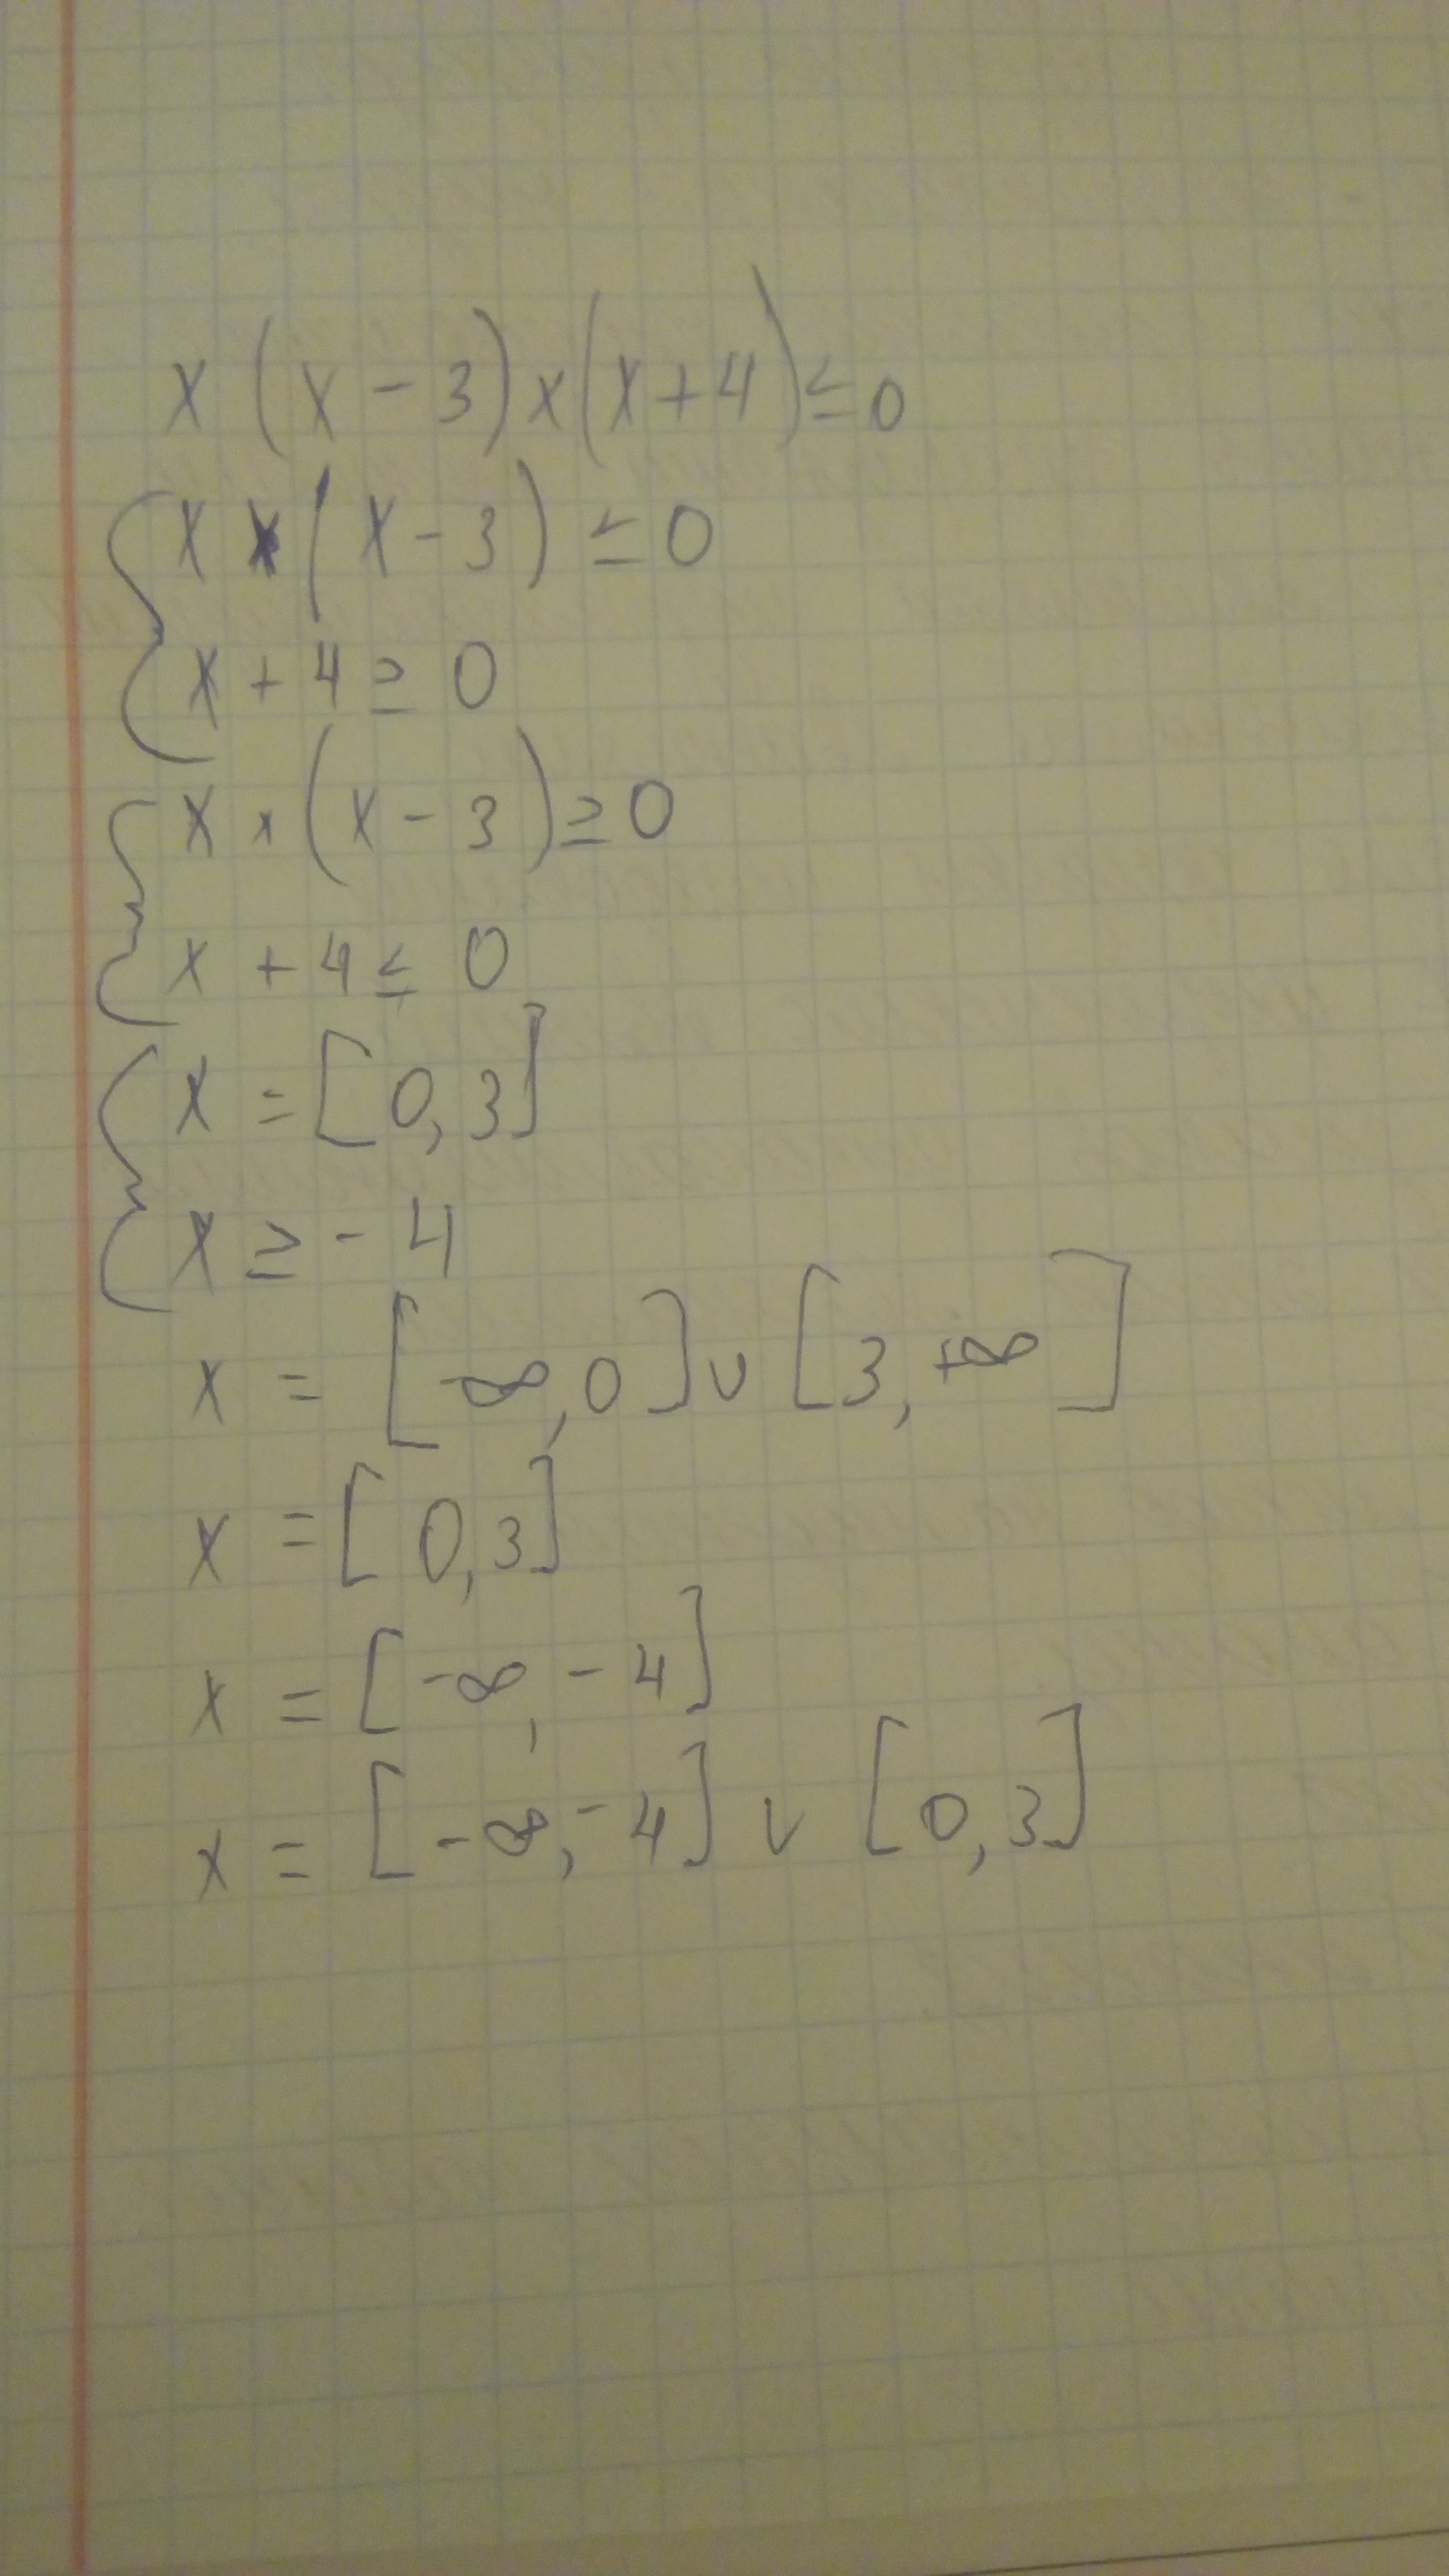 x(x-3)×(x+4)≤0
x×(x-3)≤0
x+4≥0
x×(x-3)≥0
x+4≤0
x=[0,3]
x≥-4
x=[-∞,0]∪[3,+∞]
x=[0,3]
x=[-∞,-4]
x=[-∞,-4]∪[0,3]